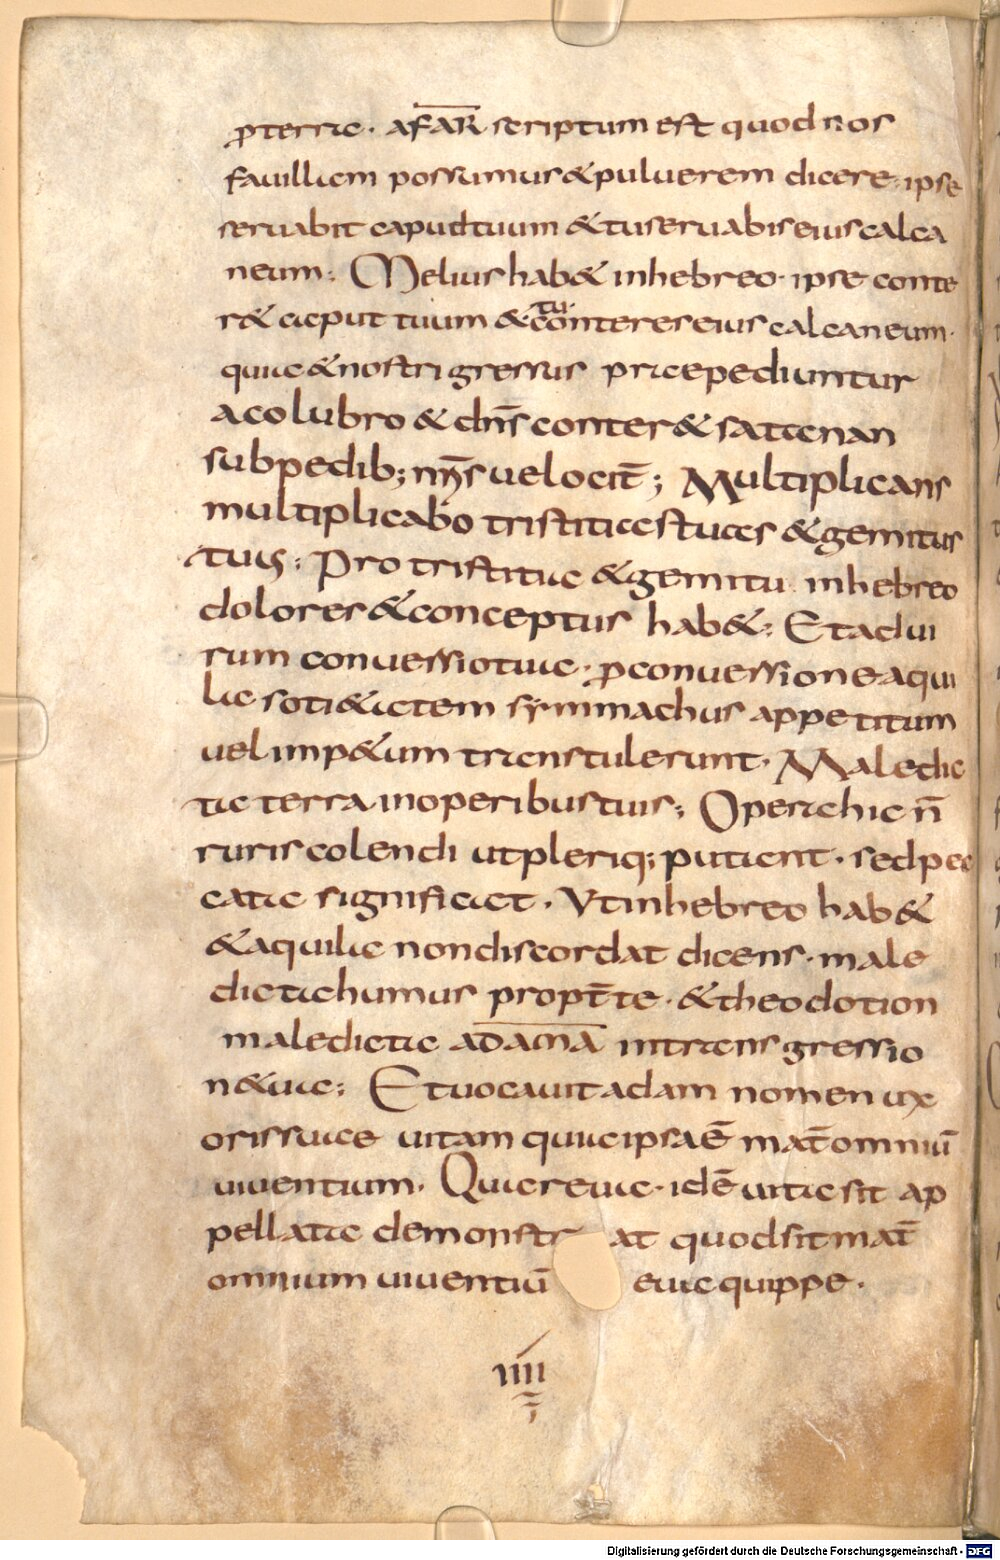 ꝓterra. AFAR scriptum est quod nos
fauillam possumus & puluerem dicere. ipse
seruabit caput tuum & tu seruabis eius calca
neum. Melius hab& in hebreo. ipse conte
r& caput tuum & tu conteres eius calcaneum.
quia & nostri gressus praepediuntur
a colubro & dn̄s conter& satanan
sub pedib; nr̄is uelocit̄; Multiplicans
multiplicabo tristitias tuas & gemitus
tuos; Pro tristitia & gemitu in hebreo
dolores & conceptus hab&; Et ad ui
rum conuersio tua. ꝓ conuersione aqui
la soti&atem symmachus appetitum
uel imp&um transtulerunt. Maledic
ta terra in operibus tuis; Opera hic n̄
ruris colendi ut pleriq; putant. sed pec
cata significat. Vt in hebreo hab&
& aquila non discordat dicens. male
dicta humus propt̄ te. & theodotion
maledicta ADAMA in transgressio
n& ua; Et uocauit adam nomen ux
oris suae uitam quia ipsa ē mat̄ omniū
uiuentium. Quare eua. idē uita sit ap
pellata demonstr at quod sit mat̄
omnium uiuentiū eua quippe.
iiii
Digitalisierung gefördert durch die Deutsche Forschungsgemeinschaft - DFG